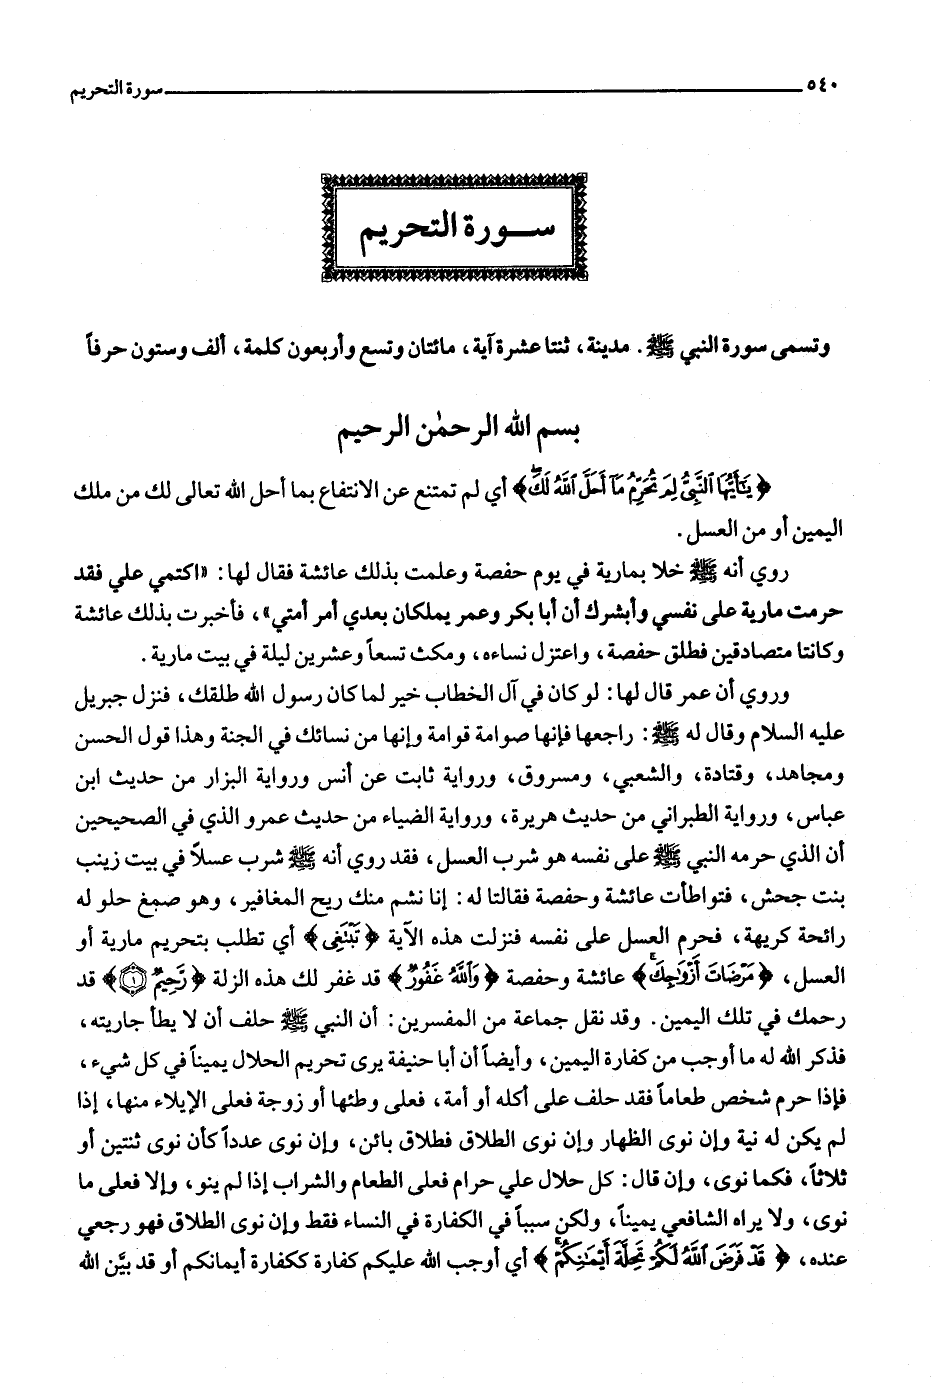 ٥٤٠ سورة التحريم
ســورة التحريم
وتسمى سورة النبي ﷺ. مدينة، ثنتا عشرة آية، مائتان وتسع وأربعون كلمة، ألف وستون حرفاً
بسم الله الرحمٰن الرحيم
﴿يَٰٓأَيُّهَا ٱلنَّبِىُّ لِمَ تُحَرِّمُ مَآ أَحَلَّ ٱللَّهُ لَكَۖ﴾ أي لم تمتنع عن الانتفاع بما أحل الله تعالى لك من ملك
اليمين أو من العسل.
روي أنه ﷺ خلا بمارية في يوم حفصة وعلمت بذلك عائشة فقال لها: «اكتمي علي فقد
حرمت مارية على نفسي وأبشرك أن أبا بكر وعمر يملكان بعدي أمر أمتي»، فأخبرت بذلك عائشة
وكانتا متصادقين فطلق حفصة، واعتزل نساءه، ومكث تسعاً وعشرين ليلة في بيت مارية.
وروي أن عمر قال لها: لو كان في آل الخطاب خير لما كان رسول الله طلقك، فنزل جبريل
عليه السلام وقال له ﷺ: راجعها فإنها صوامة قوامة وإنها من نسائك في الجنة وهذا قول الحسن
ومجاهد، وقتادة، والشعبي، ومسروق، ورواية ثابت عن أنس ورواية البزار من حديث ابن
عباس، ورواية الطبراني من حديث هريرة، ورواية الضياء من حديث عمرو الذي في الصحيحين
أن الذي حرمه النبي ﷺ على نفسه هو شرب العسل، فقد روي أنه ﷺ شرب عسلاً في بيت زينب
بنت جحش، فتواطأت عائشة وحفصة فقالتا له: إنا نشم منك ريح المغافير، وهو صمغ حلو له
رائحة كريهة، فحرم العسل على نفسه فنزلت هذه الآية ﴿تَبْتَغِى﴾ أي تطلب بتحريم مارية أو
العسل، ﴿مَرْضَاتَ أَزْوَٰجِكَۚ﴾ عائشة وحفصة ﴿وَٱللَّهُ غَفُورٌ﴾ قد غفر لك هذه الزلة ﴿رَّحِيمٌ ١﴾ قد
رحمك في تلك اليمين. وقد نقل جماعة من المفسرين: أن النبي ﷺ حلف أن لا يطأ جاريته،
فذكر الله له ما أوجب من كفارة اليمين، وأيضاً أن أبا حنيفة يرى تحريم الحلال يميناً في كل شيء،
فإذا حرم شخص طعاماً فقد حلف على أكله أو أمة، فعلى وطئها أو زوجة فعلى الإيلاء منها، إذا
لم يكن له نية وإن نوى الظهار وإن نوى الطلاق فطلاق بائن، وإن نوى عدداً كأن نوى ثنتين أو
ثلاثاً، فكما نوى، وإن قال: كل حلال علي حرام فعلى الطعام والشراب إذا لم ينو، وإلا فعلى ما
نوى، ولا يراه الشافعي يميناً، ولكن سبباً في الكفارة في النساء فقط وإن نوى الطلاق فهو رجعي
عنده، ﴿قَدْ فَرَضَ ٱللَّهُ لَكُمْ تَحِلَّةَ أَيْمَٰنِكُمْۚ﴾ أي أوجب الله عليكم كفارة ككفارة أيمانكم أو قد بيَّن الله